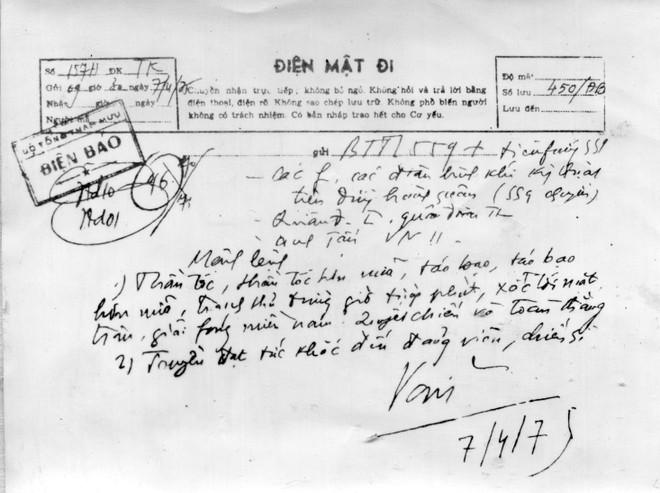 ĐIỆN MẬT ĐI
Số 157H ĐK TK
Gửi giờ ngày 7/4/75
Nhận giờ ngày
Người mã
Chuyển nhận trực tiếp, không bỏ ngỏ. Không hỏi và trả lời bằng
điện thoại, điện rõ. Không sao chép lưu trữ. Không phổ biến người
không có trách nhiệm. Có bản nháp trao hết cho Cơ yếu.
Độ mật
Số lưu 450/
Lưu đến
BỘ TỔNG THAM MƯU
ĐIỆN BÁO
46
gửi BTTL 559 +
- Các f, các đơn
- Quân đ
Mệnh lệnh
1) Thần tốc, thần tốc hơn nữa, táo bạo, táo bạo
hơn nữa, tranh thủ từng giờ từng phút, xốc tới mặt
trận, giải fong miền nam. Quyết chiến và toàn thắng
2) Truyền đạt tức khắc đến đảng viên, chiến sĩ
Văn
7/4/75